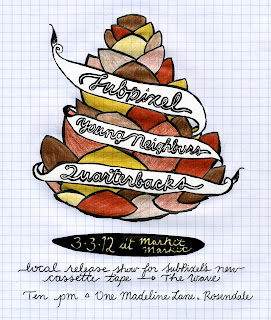 Subpixel
Young Neighburs
Quarterbacks
3.3.12 at Market Market
local release show for subpixel's new
cassette tape The Wave
Ten pm One Madeline Lane, Rosendale